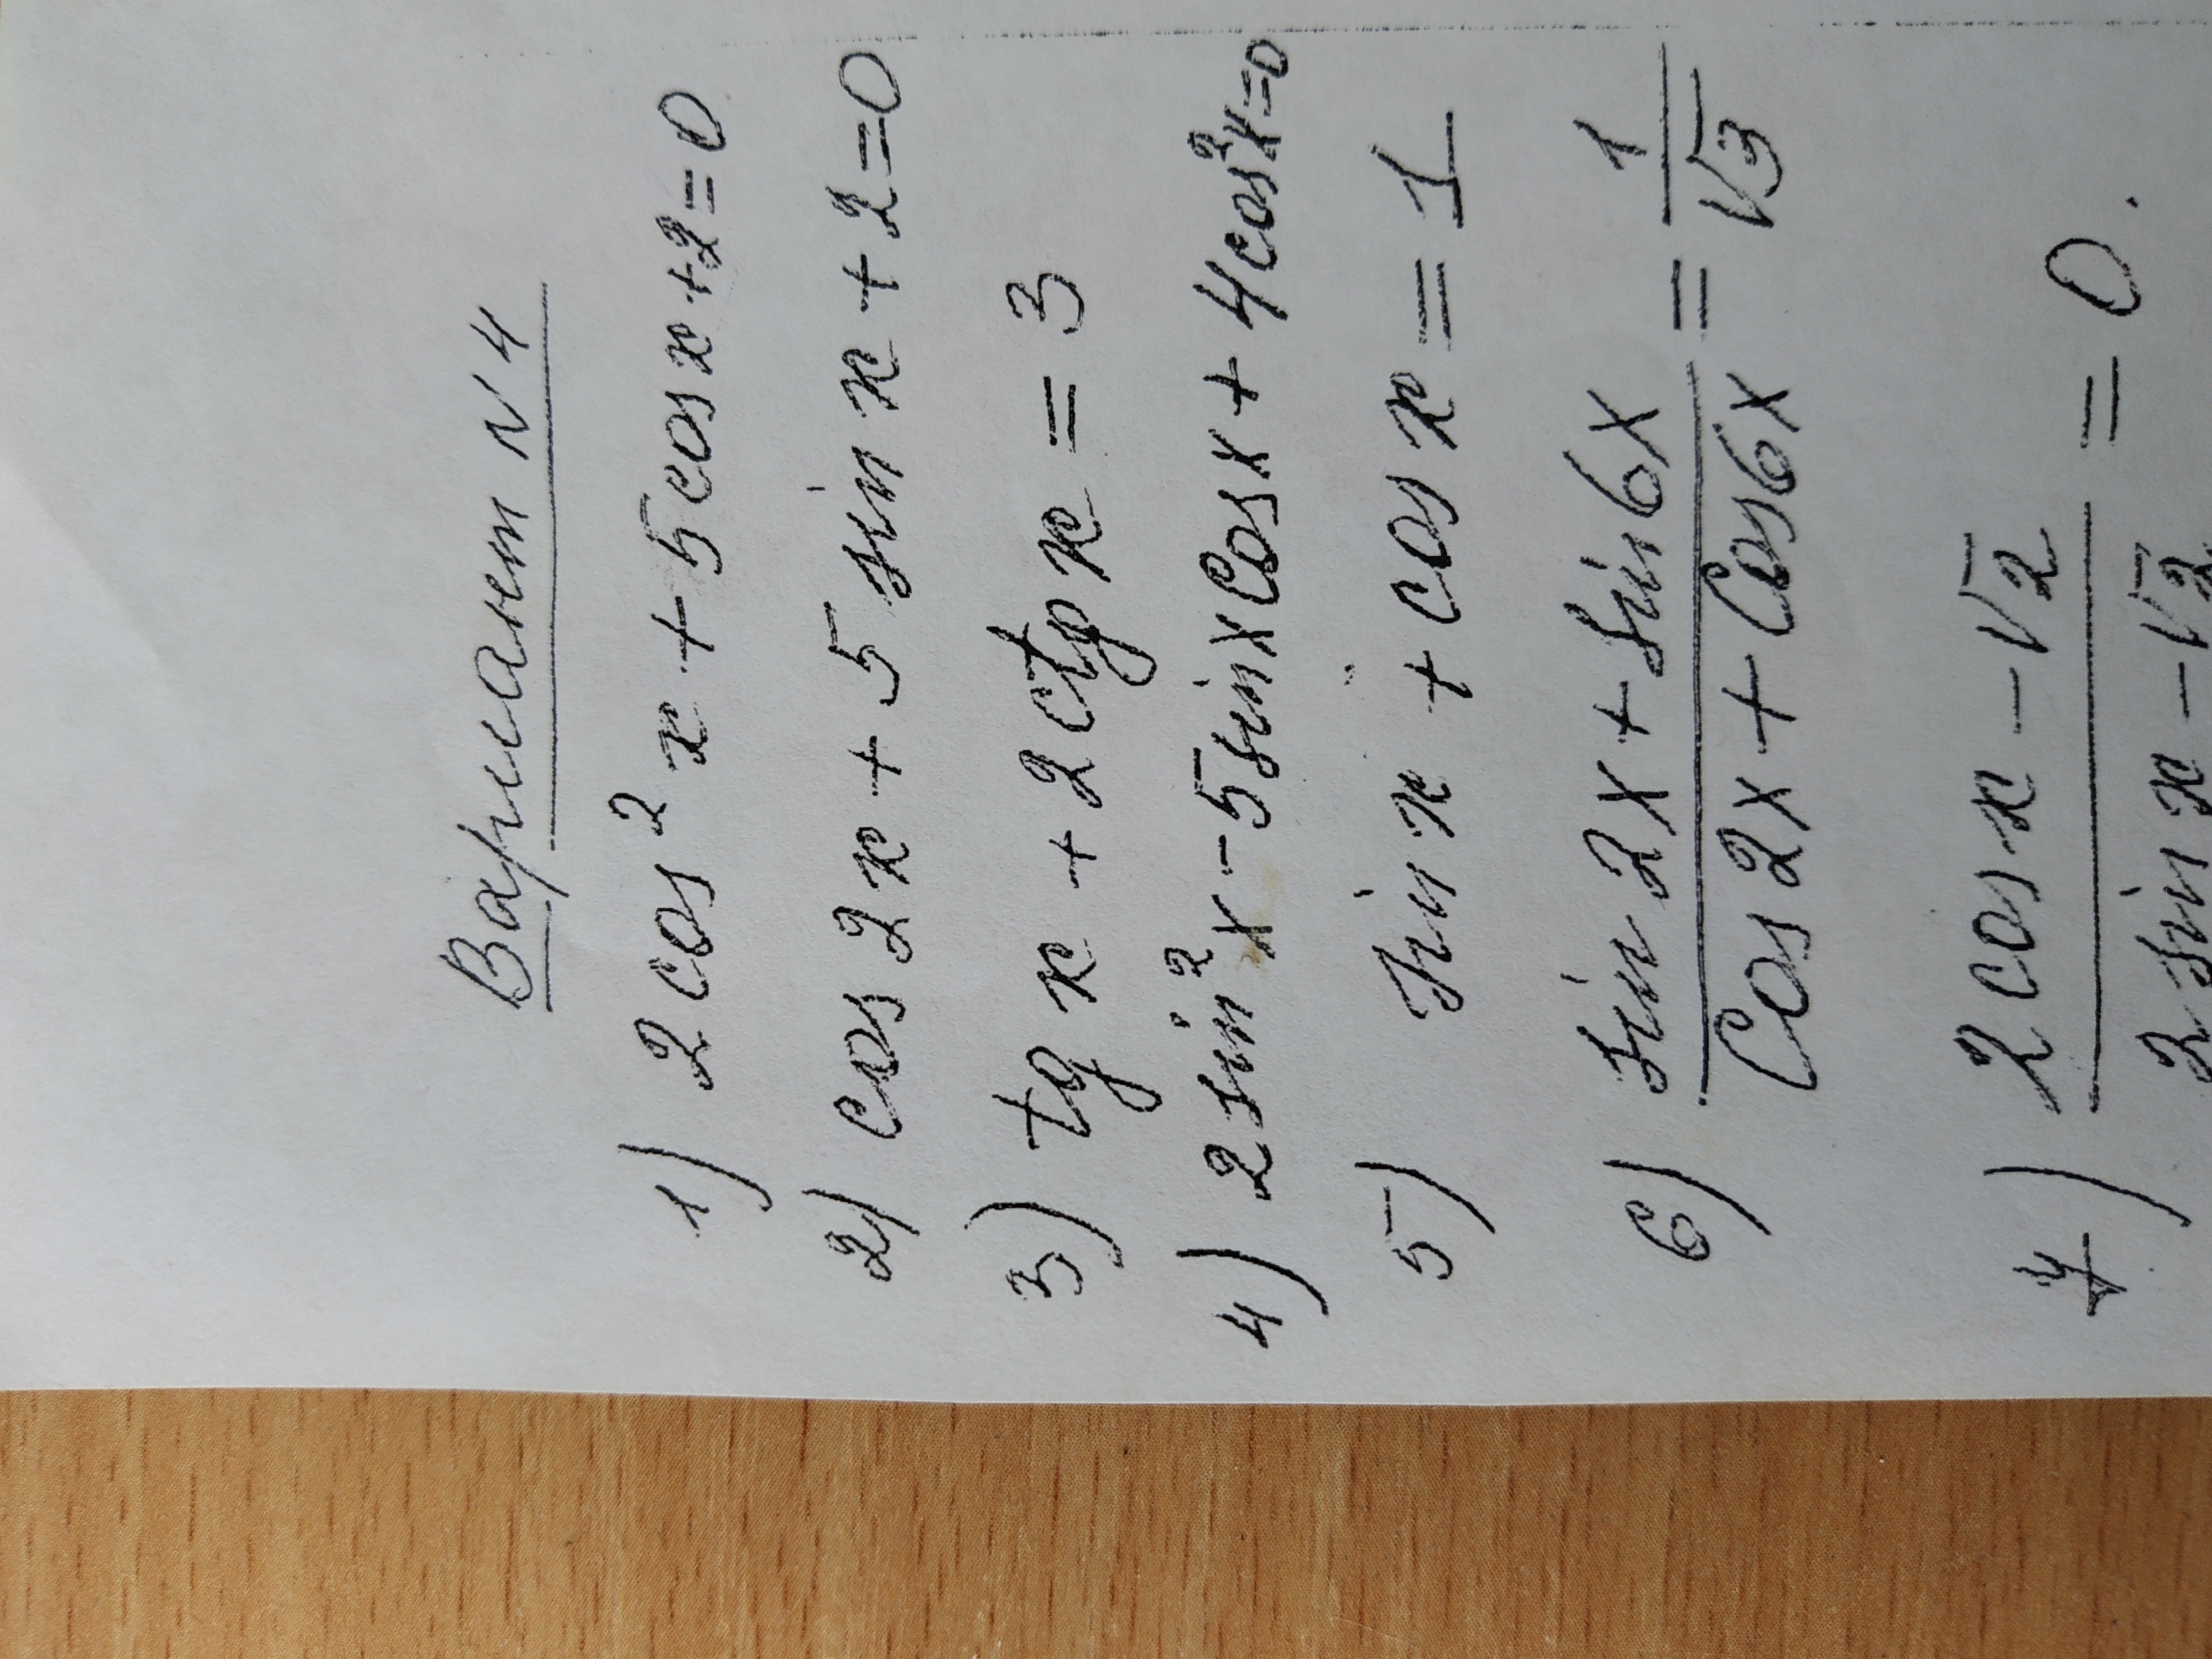 Вариант N4
1) 2 cos² x + 5 cos x + 2 = 0
2) cos 2x + 5 sin x + 2 = 0
3) tg x + 2 ctg x = 3
4) 2 sin² x - 5 sin x cos x + 4 cos² x = 0
5) sin x + cos x = 1
6) (sin 2x + sin 6x) / (cos 2x + cos 6x) = 1/√3
7) (2 cos x - √2) / (2 sin x - √2) = 0.